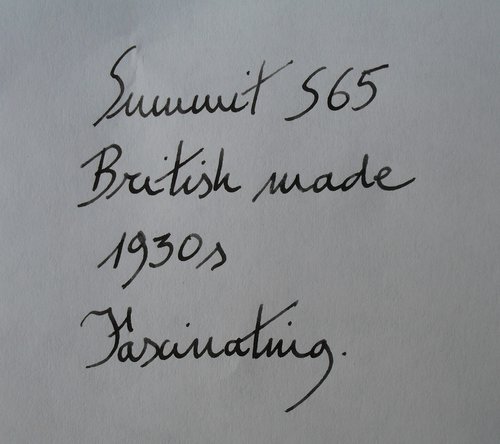 Summit S65
British made
1930s
Fascinating.